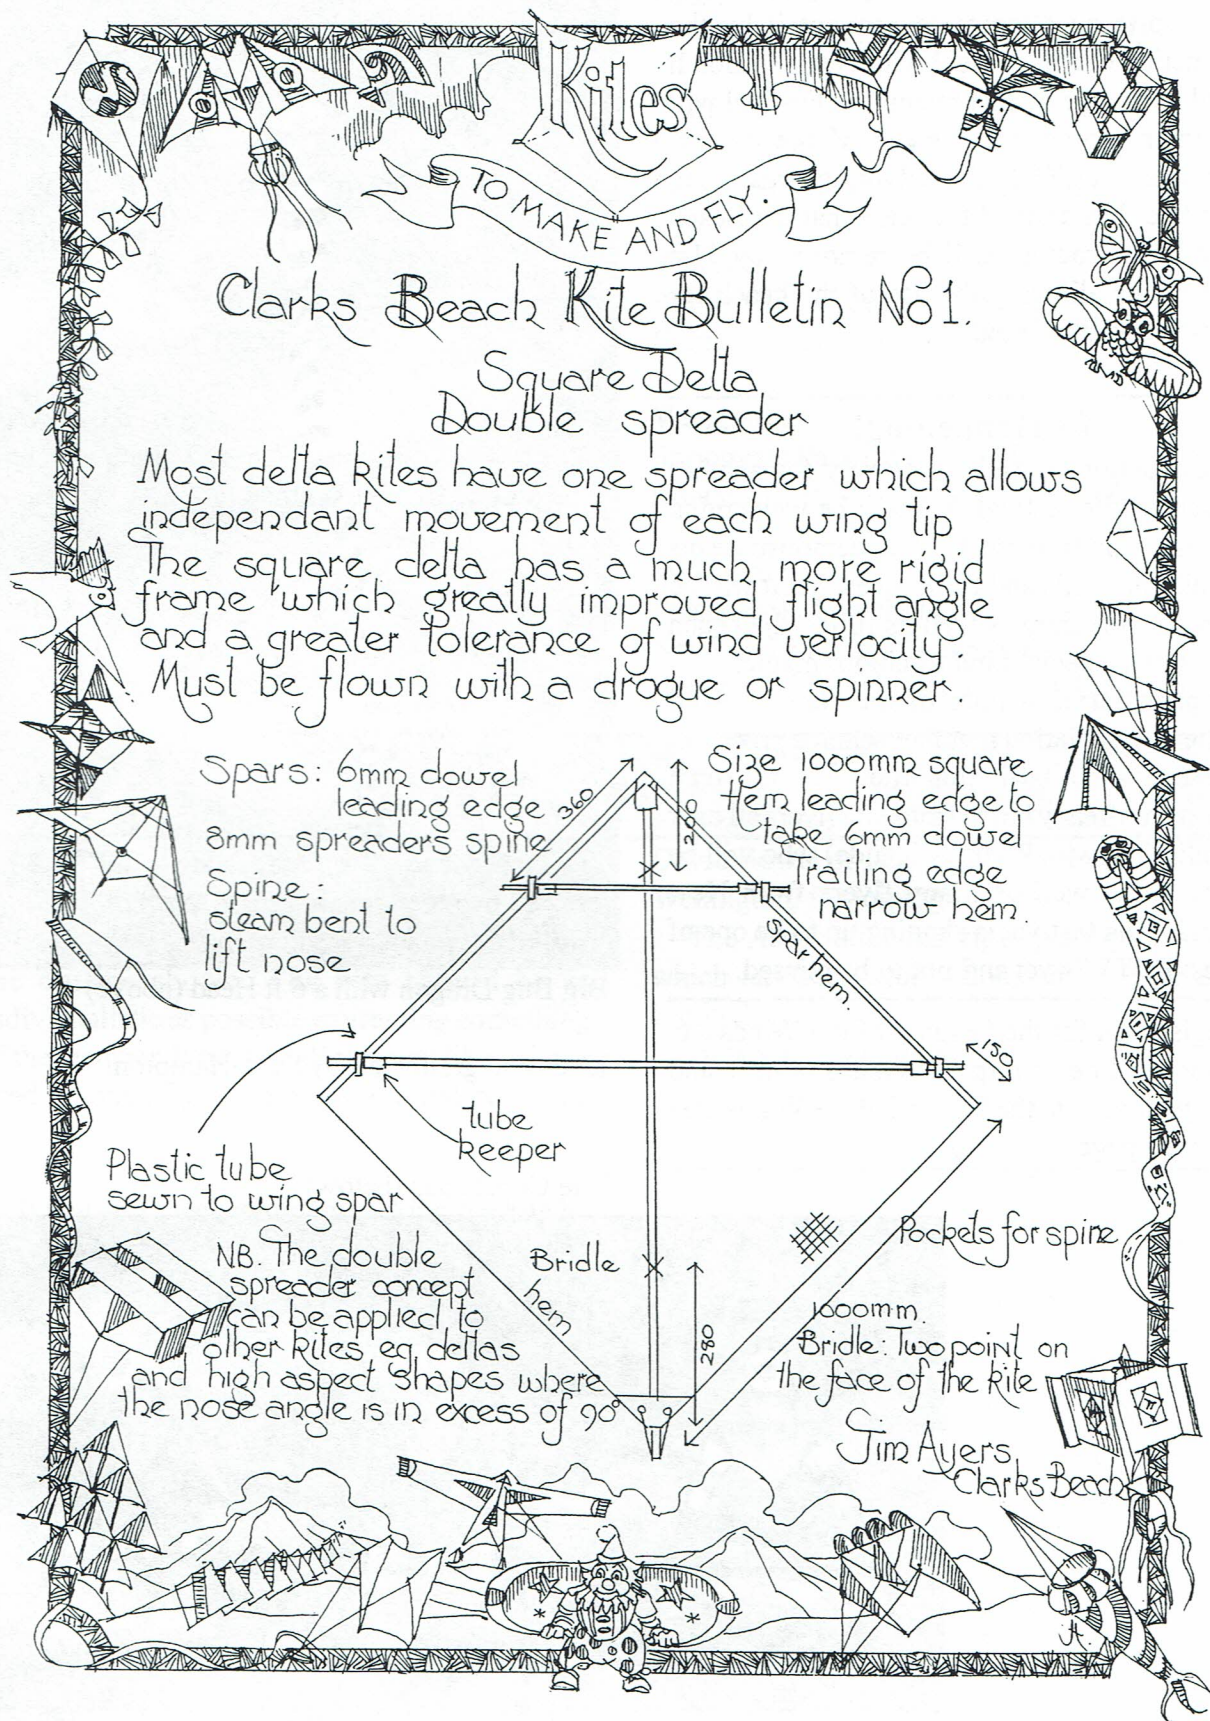 Kites
TO MAKE AND FLY.
Clarks Beach Kite Bulletin No1.
Square Delta
Double spreader
Most delta kites have one spreader which allows
independant movement of each wing tip
The square delta has a much more rigid
frame which greatly improved flight angle
and a greater tolerance of wind verlocity.
Must be flown with a drogue or spinner.
Spars: 6mm dowel
leading edge
8mm spreaders spine
Spine:
steam bent to
lift nose
360
Size 1000mm square
Hem leading edge to
take 6mm dowel
Trailing edge
narrow hem.
spar hem.
150
tube
keeper
Plastic tube
sewn to wing spar
NB. The double
spreader concept
can be applied to
other kites eg. deltas
and high aspect shapes where
the nose angle is in excess of 90°
Bridle
hem
280
Pockets for spine
1000mm.
Bridle: Two point on
the face of the kite
Jim Ayers
Clarks Beach